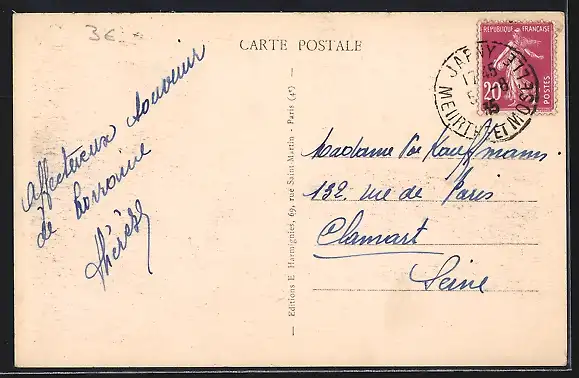 3€
CARTE POSTALE
REPUBLIQUE FRANÇAISE
20
POSTES
JARNY
17 15
5 8
35
MEURTHE ET MOSELLE
Affectueux souvenir
de Lorraine
Thérèse
Editions E. Harmignies, 69, rue Saint-Martin - Paris (4e)
Madame Kauffmann.
132 rue de Paris
Clamart
Seine